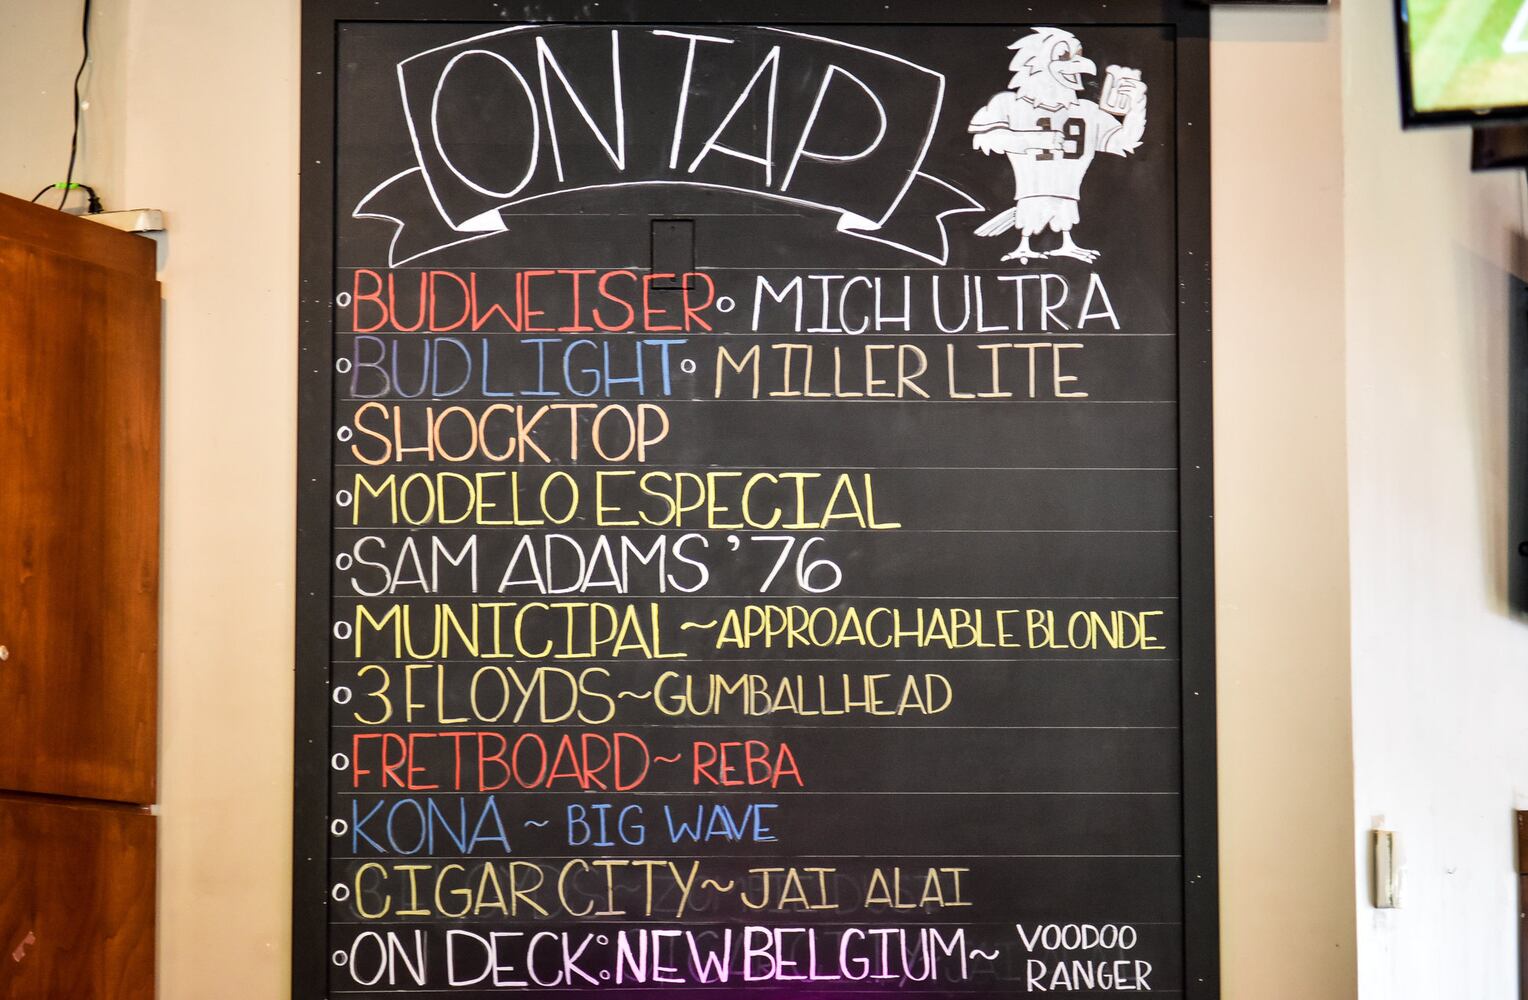 ON TAP
19
°BUDWEISER° MICH ULTRA
°BUD LIGHT° MILLER LITE
°SHOCKTOP
°MODELO ESPECIAL
°SAM ADAMS '76
°MUNICIPAL~APPROACHABLE BLONDE
°3 FLOYDS~GUMBALLHEAD
°FRETBOARD~REBA
°KONA ~ BIG WAVE
°CIGAR CITY~JAI ALAI
°ON DECK: NEW BELGIUM~ VOODOO
RANGER